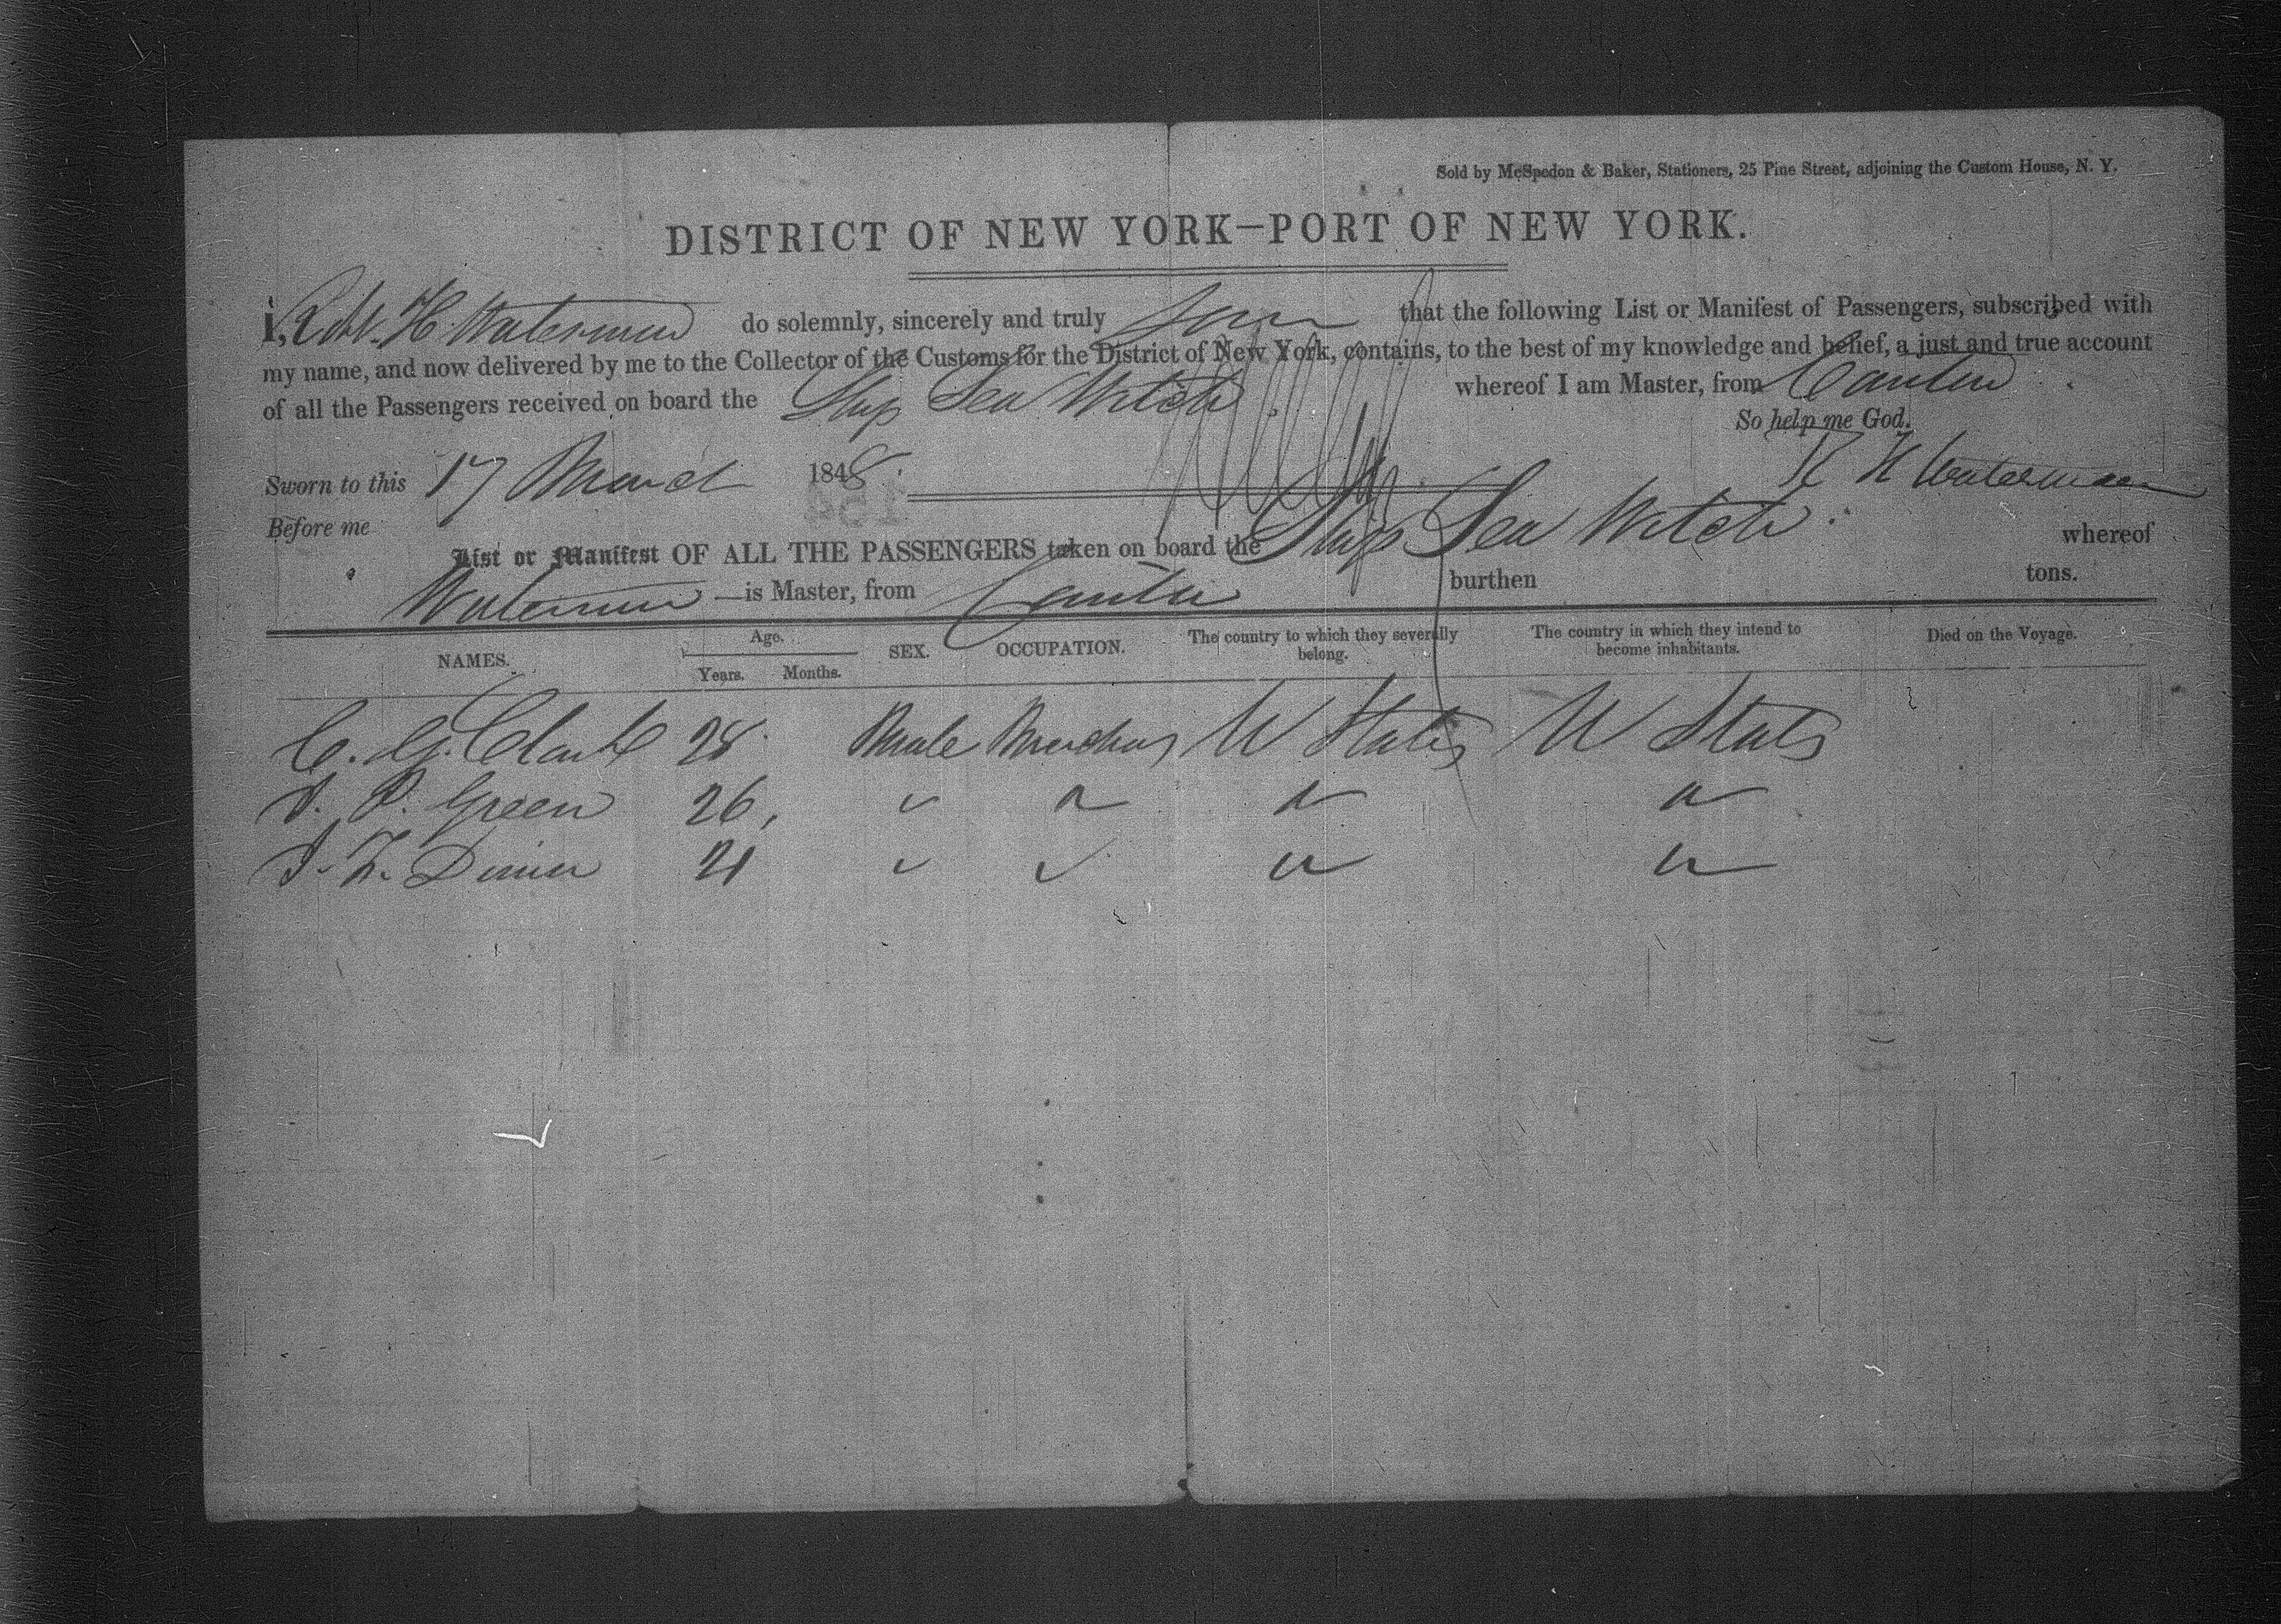 Sold by McSpedon & Baker, Stationers, 25 Pine Street, adjoining the Custom House, N. Y.
DISTRICT OF NEW YORK—PORT OF NEW YORK.
I, Robt. H. Waterman do solemnly, sincerely and truly swear that the following List or Manifest of Passengers, subscribed with
my name, and now delivered by me to the Collector of the Customs for the District of New York, contains, to the best of my knowledge and belief, a just and true account
of all the Passengers received on board the Ship Sea Witch whereof I am Master, from Canton
So help me God.
Sworn to this 17 March 1848. R H Waterman
Before me
List or Manifest OF ALL THE PASSENGERS taken on board the Ship Sea Witch whereof
Waterman is Master, from Canton burthen tons.
NAMES. Age. Years. Months. SEX. OCCUPATION. The country to which they severally belong. The country in which they intend to become inhabitants. Died on the Voyage.
C. G. Clark 28 Male Merchant U States U States
P. Green 26, " " " "
21 " " " "